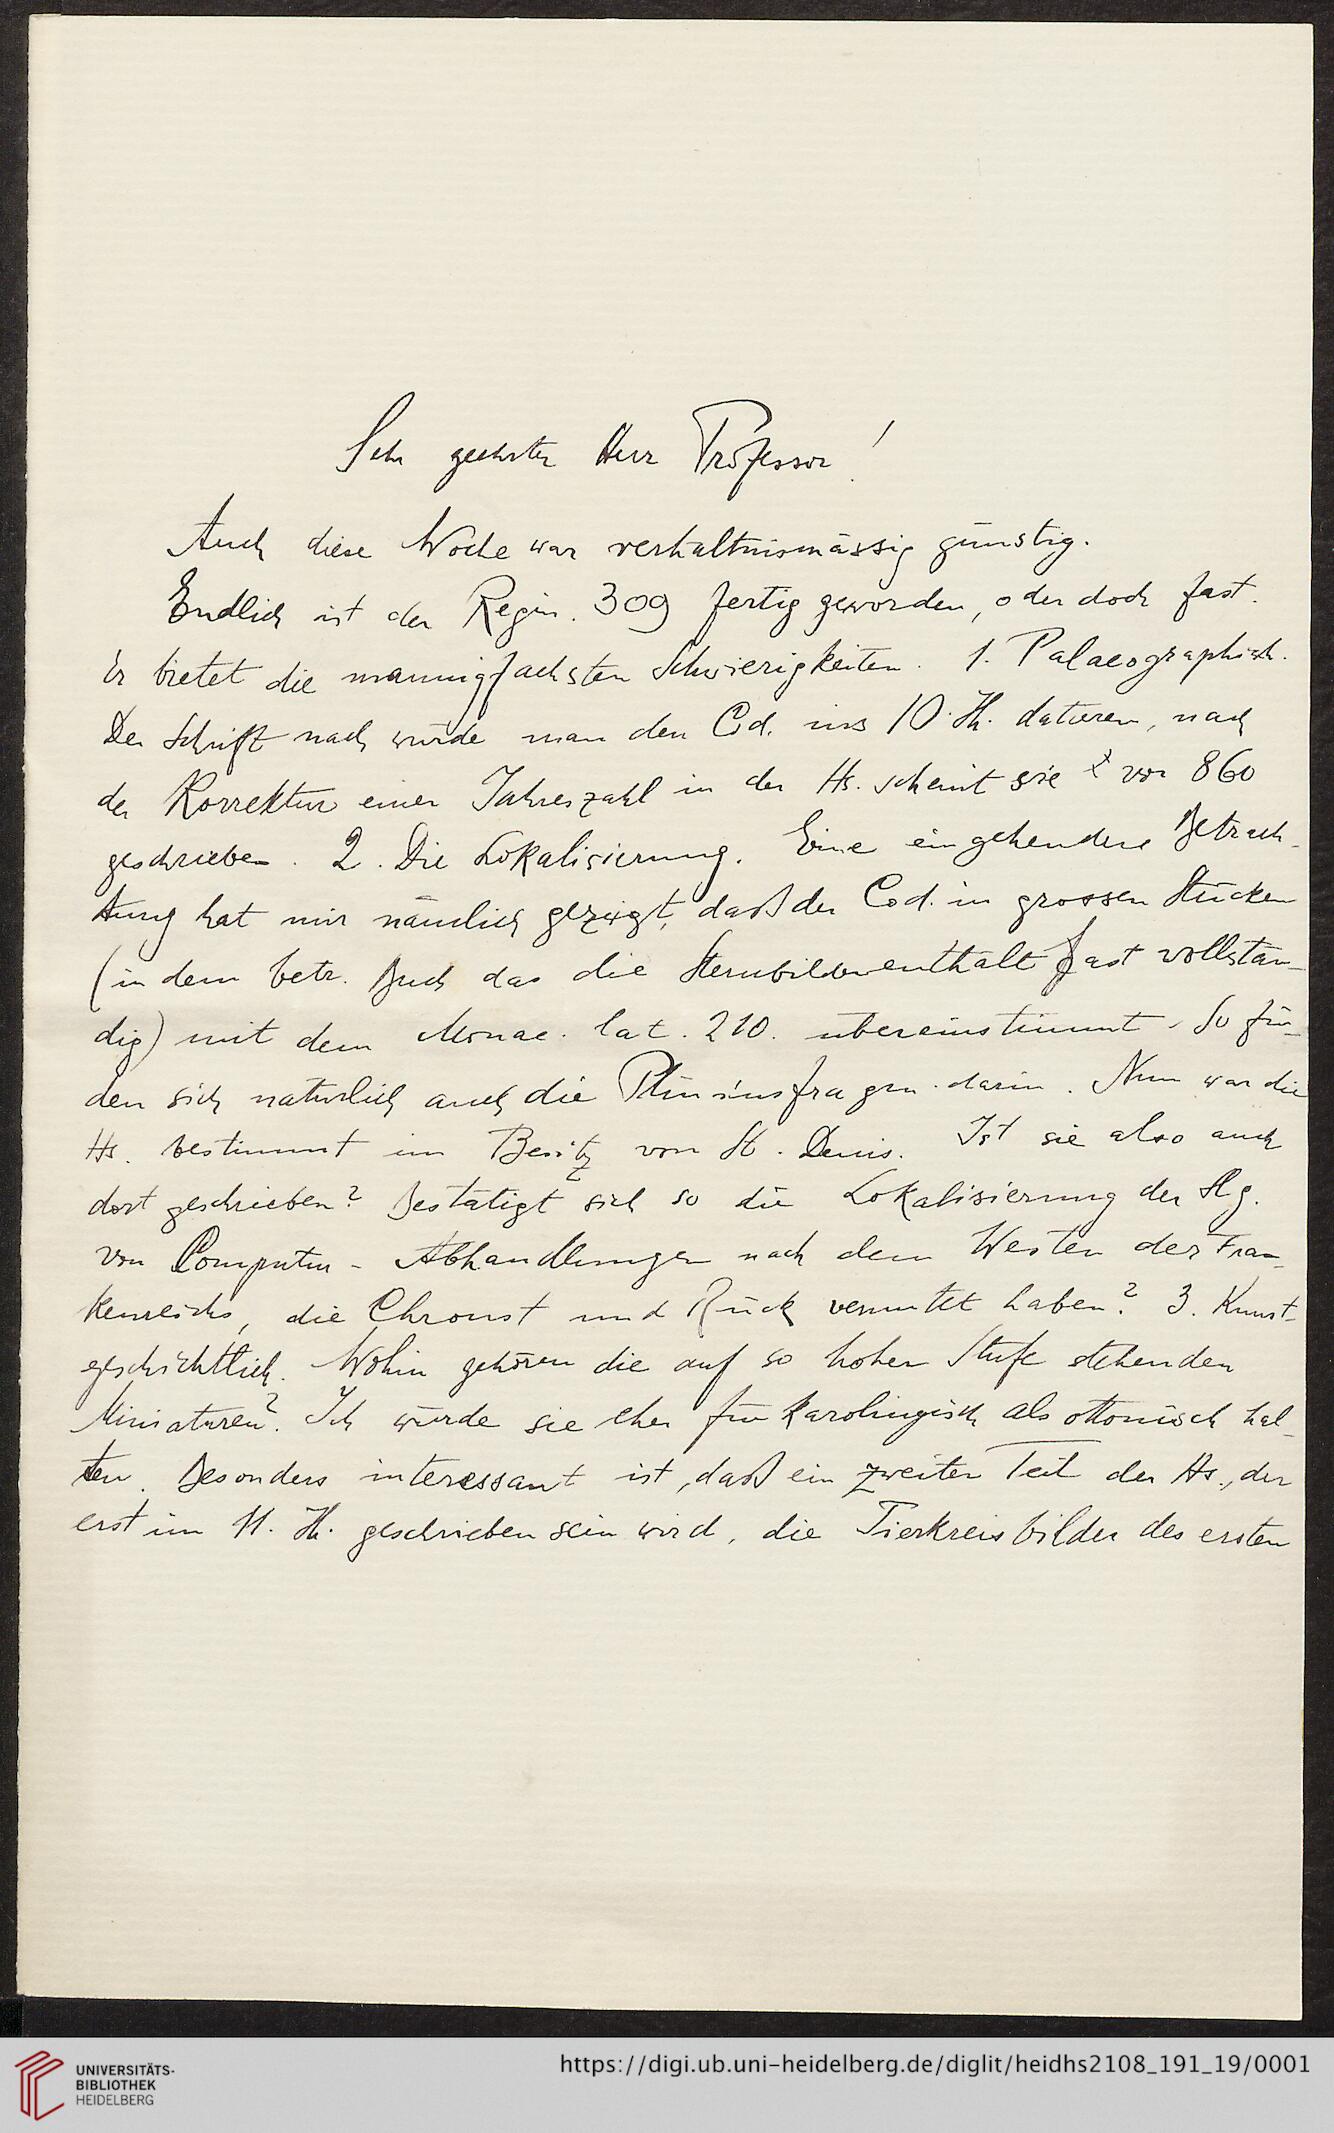 Sehr geehrter Herr Professor!
Auch diese Woche war verhältnismässig günstig.
Endlich ist der Regin. 309 fertig geworden, oder doch fast.
Er bietet die mannigfachsten Schwierigkeiten. 1. Palaeographisch.
Der Schrift nach würde man den Cod. ins 10. Jh. datieren, nach
der Korrektur einer Jahreszahl in der Hs. scheint sie vor 860
geschrieben. 2. Die Lokalisierung. Eine eingehendere Betrach-
tung hat mir nämlich gezeigt, daß der Cod. in grossen Stücken
(in dem betr. Buch das die Sternbilder enthält fast vollstän-
dig) mit dem Monac. lat. 210. übereinstimmt. So fin-
den sich natürlich auch die Pliniusfragm. darin. Nun war die
Hs. bestimmt im Besitz von St. Denis. Ist sie also auch
dort geschrieben? Bestätigt sich so die Lokalisierung der Slg.
von Computus-Abhandlungen nach dem Westen des Fran-
kenreichs, die Chroust und Rück vermutet haben? 3. Kunst-
geschichtlich. Wohin gehören die auf so hoher Stufe stehenden
Miniaturen? Ich würde sie eher für karolingisch als ottonisch hal-
ten. Besonders interessant ist, daß ein zweiter Teil der Hs., der
erst im 11. Jh. geschrieben sein wird, die Tierkreisbilder des ersten
UNIVERSITÄTS-
BIBLIOTHEK
HEIDELBERG
https://digi.ub.uni-heidelberg.de/diglit/heidhs2108_191_19/0001